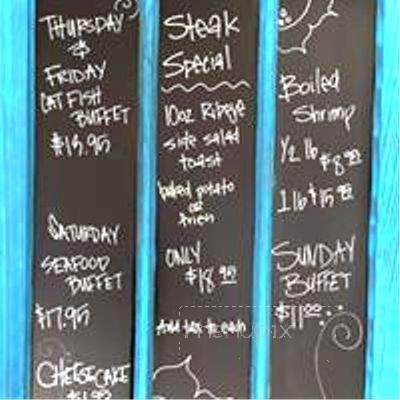 THURSDAY
&
FRIDAY
CAT FISH
BUFFET
$13.95
SATURDAY
SEAFOOD
BUFFET
$17.95
CHEESECAKE
Steak
Special
10oz Ribeye
side salad
toast
baked potato
or
fries
ONLY
$18.95
Add tax to each
Boiled
Shrimp
1/2 lb $8.99
1 lb $15.99
SUNDAY
BUFFET
$11.00